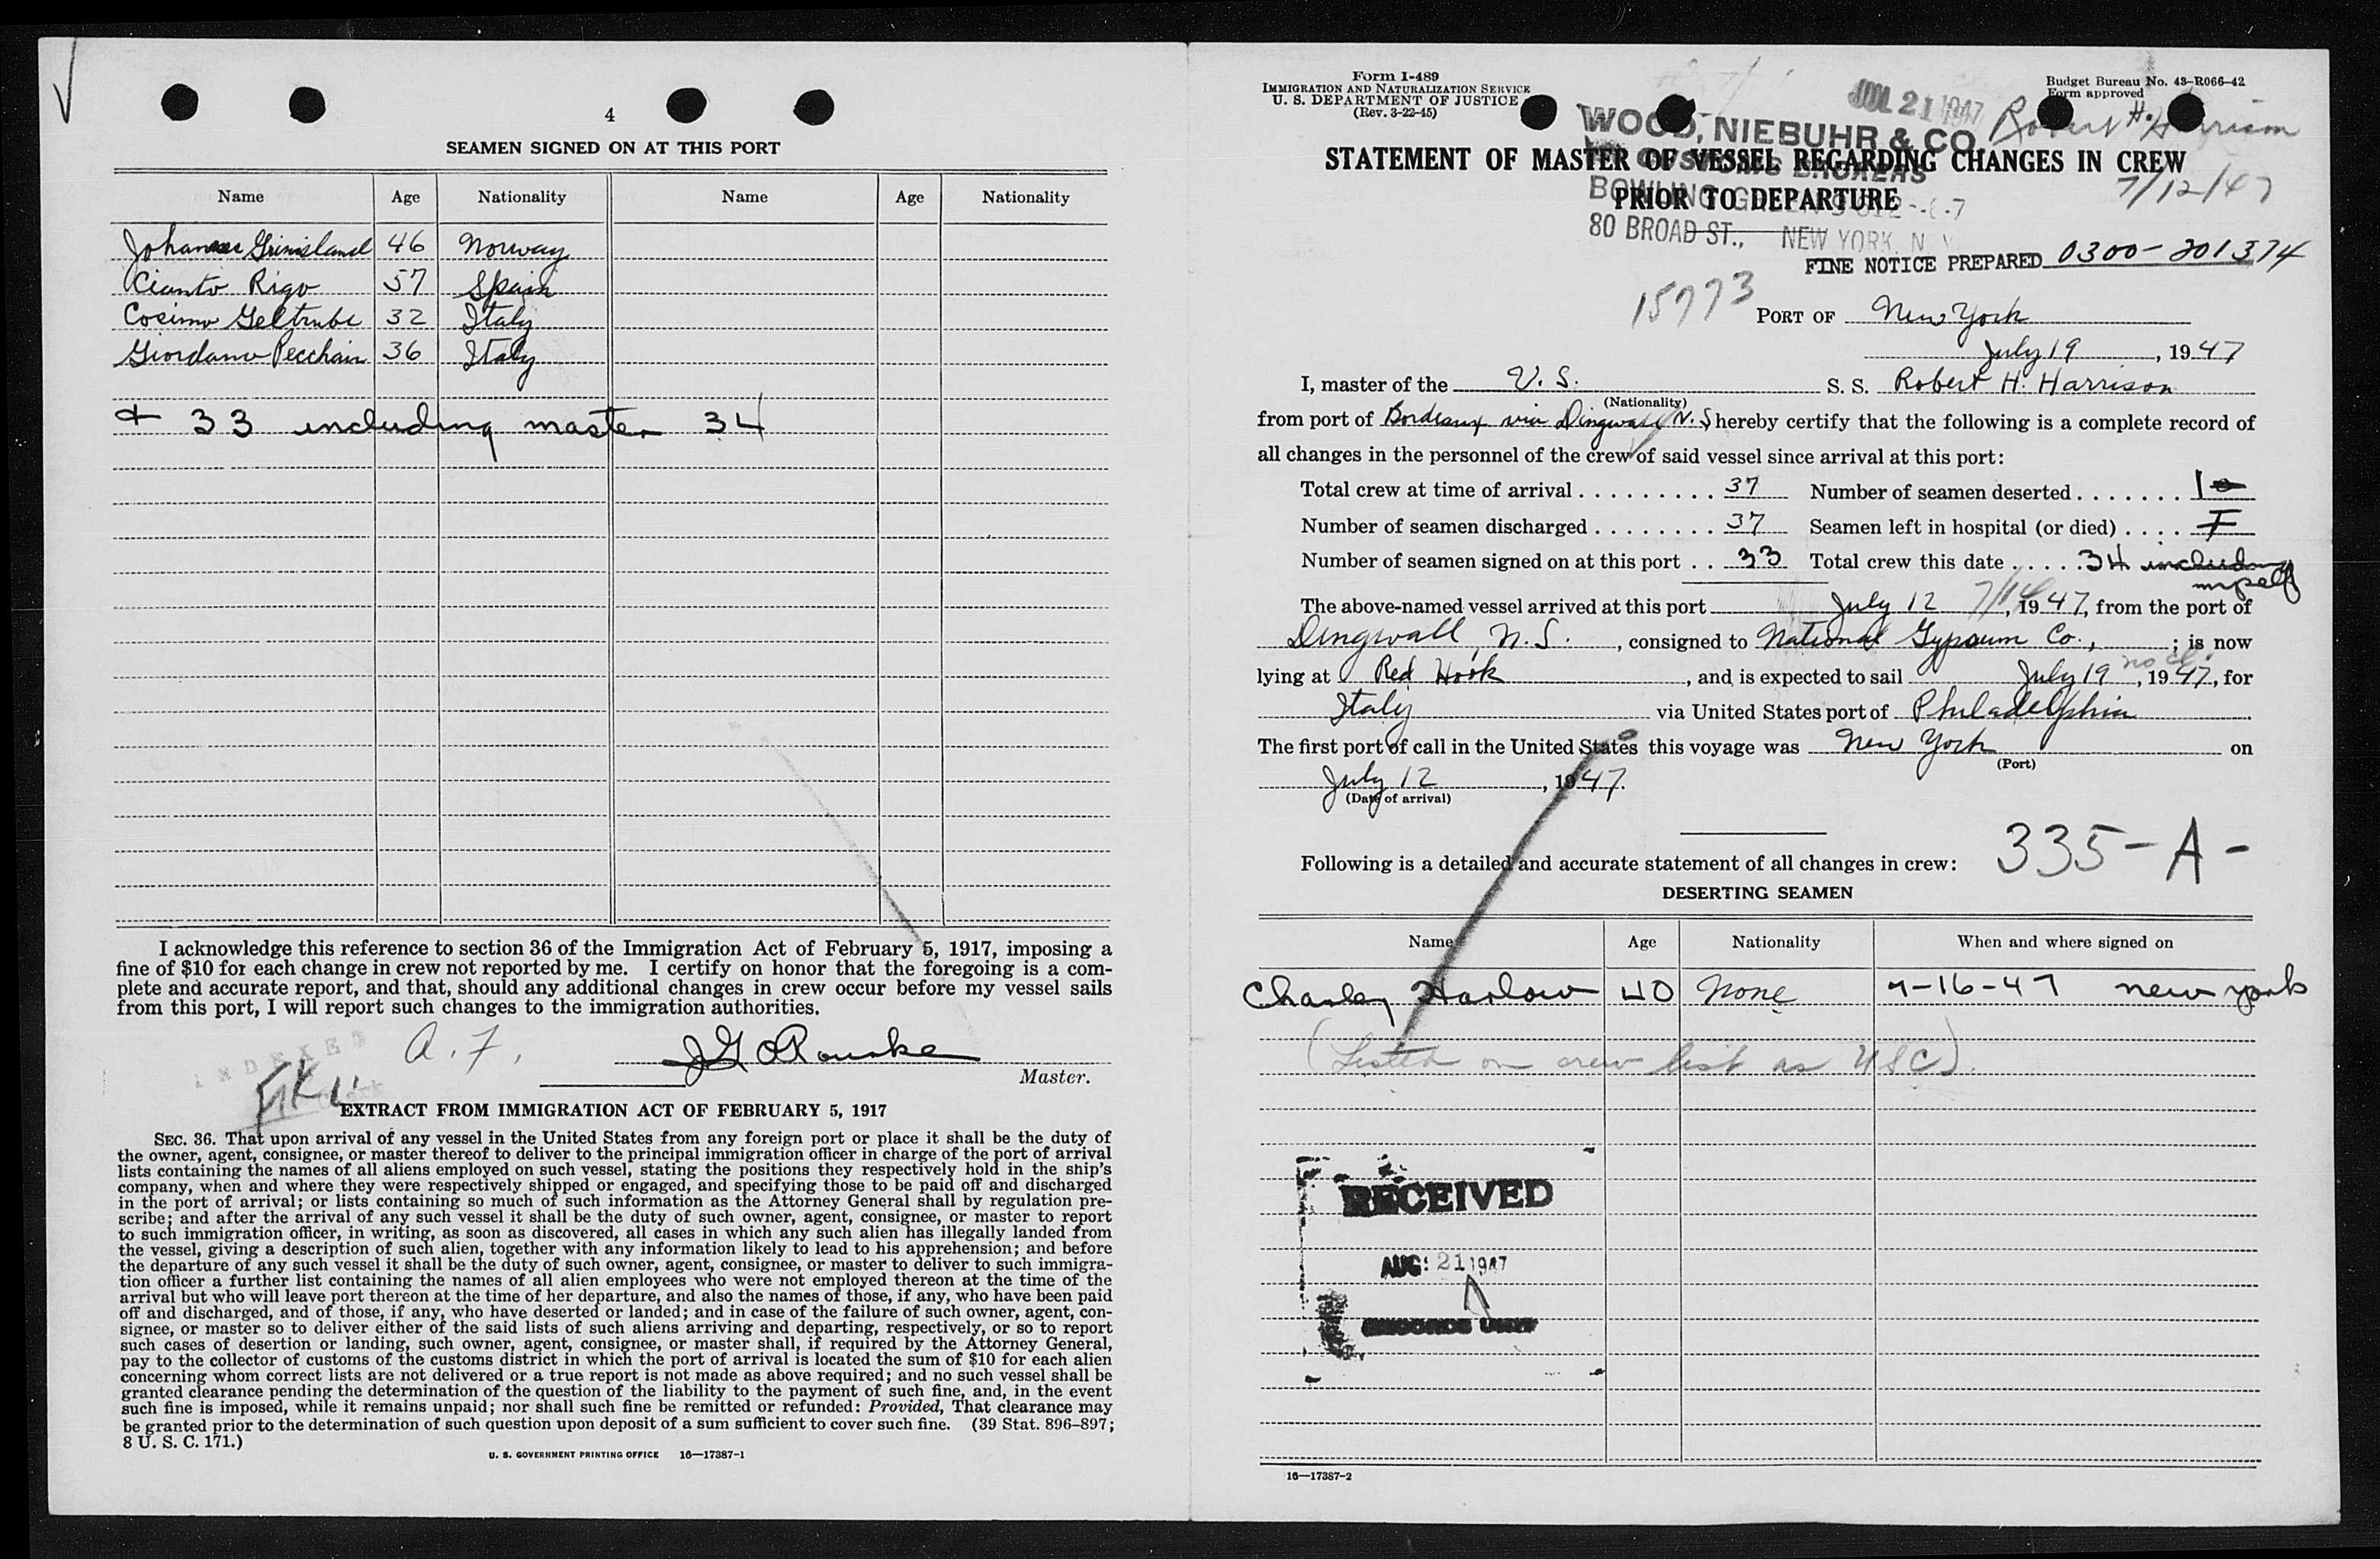 4
SEAMEN SIGNED ON AT THIS PORT
Name Age Nationality Name Age Nationality
Johannes Grimsland 46 Norway
Cianto Rigo 57 Spain
Cosimo Geltrube 32 Italy
Giordano Pecchair 36 Italy
+ 33 including master 34
I acknowledge this reference to section 36 of the Immigration Act of February 5, 1917, imposing a
fine of $10 for each change in crew not reported by me. I certify on honor that the foregoing is a com-
plete and accurate report, and that, should any additional changes in crew occur before my vessel sails
from this port, I will report such changes to the immigration authorities.
A. F. J G O'Rourke
INDEXED
Master.
EXTRACT FROM IMMIGRATION ACT OF FEBRUARY 5, 1917
SEC. 36. That upon arrival of any vessel in the United States from any foreign port or place it shall be the duty of
the owner, agent, consignee, or master thereof to deliver to the principal immigration officer in charge of the port of arrival
lists containing the names of all aliens employed on such vessel, stating the positions they respectively hold in the ship's
company, when and where they were respectively shipped or engaged, and specifying those to be paid off and discharged
in the port of arrival; or lists containing so much of such information as the Attorney General shall by regulation pre-
scribe; and after the arrival of any such vessel it shall be the duty of such owner, agent, consignee, or master to report
to such immigration officer, in writing, as soon as discovered, all cases in which any such alien has illegally landed from
the vessel, giving a description of such alien, together with any information likely to lead to his apprehension; and before
the departure of any such vessel it shall be the duty of such owner, agent, consignee, or master to deliver to such immigra-
tion officer a further list containing the names of all alien employees who were not employed thereon at the time of the
arrival but who will leave port thereon at the time of her departure, and also the names of those, if any, who have been paid
off and discharged, and of those, if any, who have deserted or landed; and in case of the failure of such owner, agent, con-
signee, or master so to deliver either of the said lists of such aliens arriving and departing, respectively, or so to report
such cases of desertion or landing, such owner, agent, consignee, or master shall, if required by the Attorney General,
pay to the collector of customs of the customs district in which the port of arrival is located the sum of $10 for each alien
concerning whom correct lists are not delivered or a true report is not made as above required; and no such vessel shall be
granted clearance pending the determination of the question of the liability to the payment of such fine, and, in the event
such fine is imposed, while it remains unpaid; nor shall such fine be remitted or refunded: Provided, That clearance may
be granted prior to the determination of such question upon deposit of a sum sufficient to cover such fine. (39 Stat. 896–897;
8 U. S. C. 171.)
U. S. GOVERNMENT PRINTING OFFICE 16—17387-1
Form I-489
IMMIGRATION AND NATURALIZATION SERVICE
U. S. DEPARTMENT OF JUSTICE
(Rev. 3-22-45)
Budget Bureau No. 43–R066–42
Form approved
JUL 21 1947
Robert H. Harrison
7/12/47
WOOD, NIEBUHR & CO.
CUSTOMS BROKERS
BOWLING GREEN
80 BROAD ST., NEW YORK, N. Y.
STATEMENT OF MASTER OF VESSEL REGARDING CHANGES IN CREW
PRIOR TO DEPARTURE
FINE NOTICE PREPARED 0300-201374
15773
PORT OF New York
July 19, 1947
I, master of the U. S. S. S. Robert H. Harrison
(Nationality)
from port of Bordeaux via Dingwall N. S hereby certify that the following is a complete record of
all changes in the personnel of the crew of said vessel since arrival at this port:
Total crew at time of arrival 37 Number of seamen deserted 1
Number of seamen discharged 37 Seamen left in hospital (or died)
Number of seamen signed on at this port 33 Total crew this date 34 including
myself
The above-named vessel arrived at this port July 12, 1947, from the port of
Dingwall, N. S., consigned to National Gypsum Co., ; is now
lying at Red Hook, and is expected to sail July 19, 1947, for
Italy via United States port of Philadelphia
The first port of call in the United States this voyage was New York on
(Port)
July 12, 1947.
(Date of arrival)
Following is a detailed and accurate statement of all changes in crew: 335-A-
DESERTING SEAMEN
Name Age Nationality When and where signed on
Charley Harlow 40 None 7-16-47 new york
(Listed on crew list as USC)
RECEIVED
AUG 21 1947
RECORDS UNIT
16—17387-2